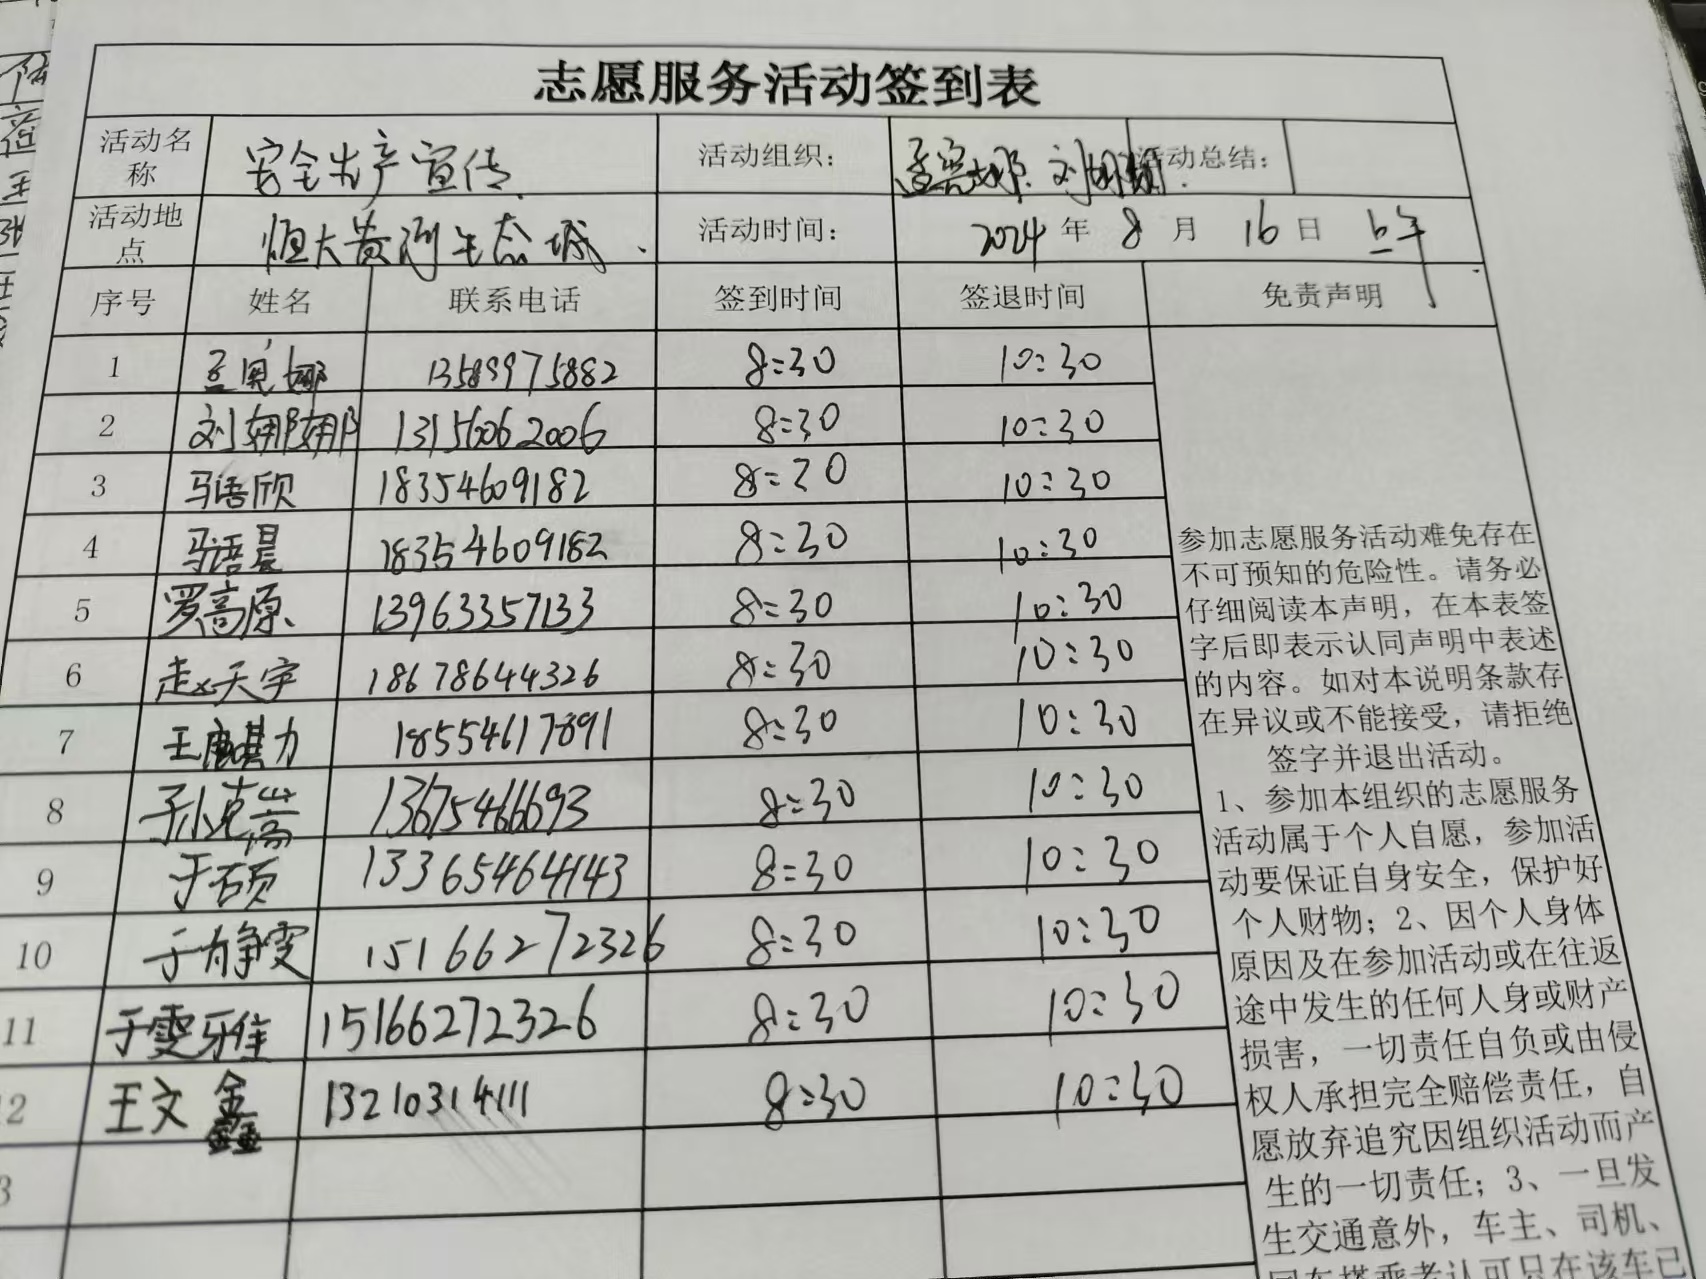 志愿服务活动签到表
活动名称 安全生产宣传 活动组织： 刘娜娜 活动总结：
活动地点 恒大黄河生态城. 活动时间： 2024 年 8 月 16 日 上午
序号 姓名 联系电话 签到时间 签退时间 免责声明
1 孟 娜 13589975882 8:30 10:30
2 刘娜娜 13156062006 8:30 10:30
3 马语欣 18354609182 8:20 10:30
4 马语晨 18354609182 8:30 10:30
5 罗高原 13963357133 8:30 10:30
6 赵天宇 18678644326 8:30 10:30
7 王麒力 18554617891 8:30 10:30
8 孙克嵩 13675466693 8:30 10:30
9 于硕 13365464143 8:30 10:30
10 于静雯 15166272326 8:30 10:30
11 于雯雅 15166272326 8:30 10:30
12 王文鑫 13210314111 8:30 10:30
3
参加志愿服务活动难免存在
不可预知的危险性。请务必
仔细阅读本声明，在本表签
字后即表示认同声明中表述
的内容。如对本说明条款存
在异议或不能接受，请拒绝
签字并退出活动。
1、参加本组织的志愿服务
活动属于个人自愿，参加活
动要保证自身安全，保护好
个人财物；2、因个人身体
原因及在参加活动或在往返
途中发生的任何人身或财产
损害，一切责任自负或由侵
权人承担完全赔偿责任，自
愿放弃追究因组织活动而产
生的一切责任；3、一旦发
生交通意外，车主、司机、
同车搭乘者认可只在该车已